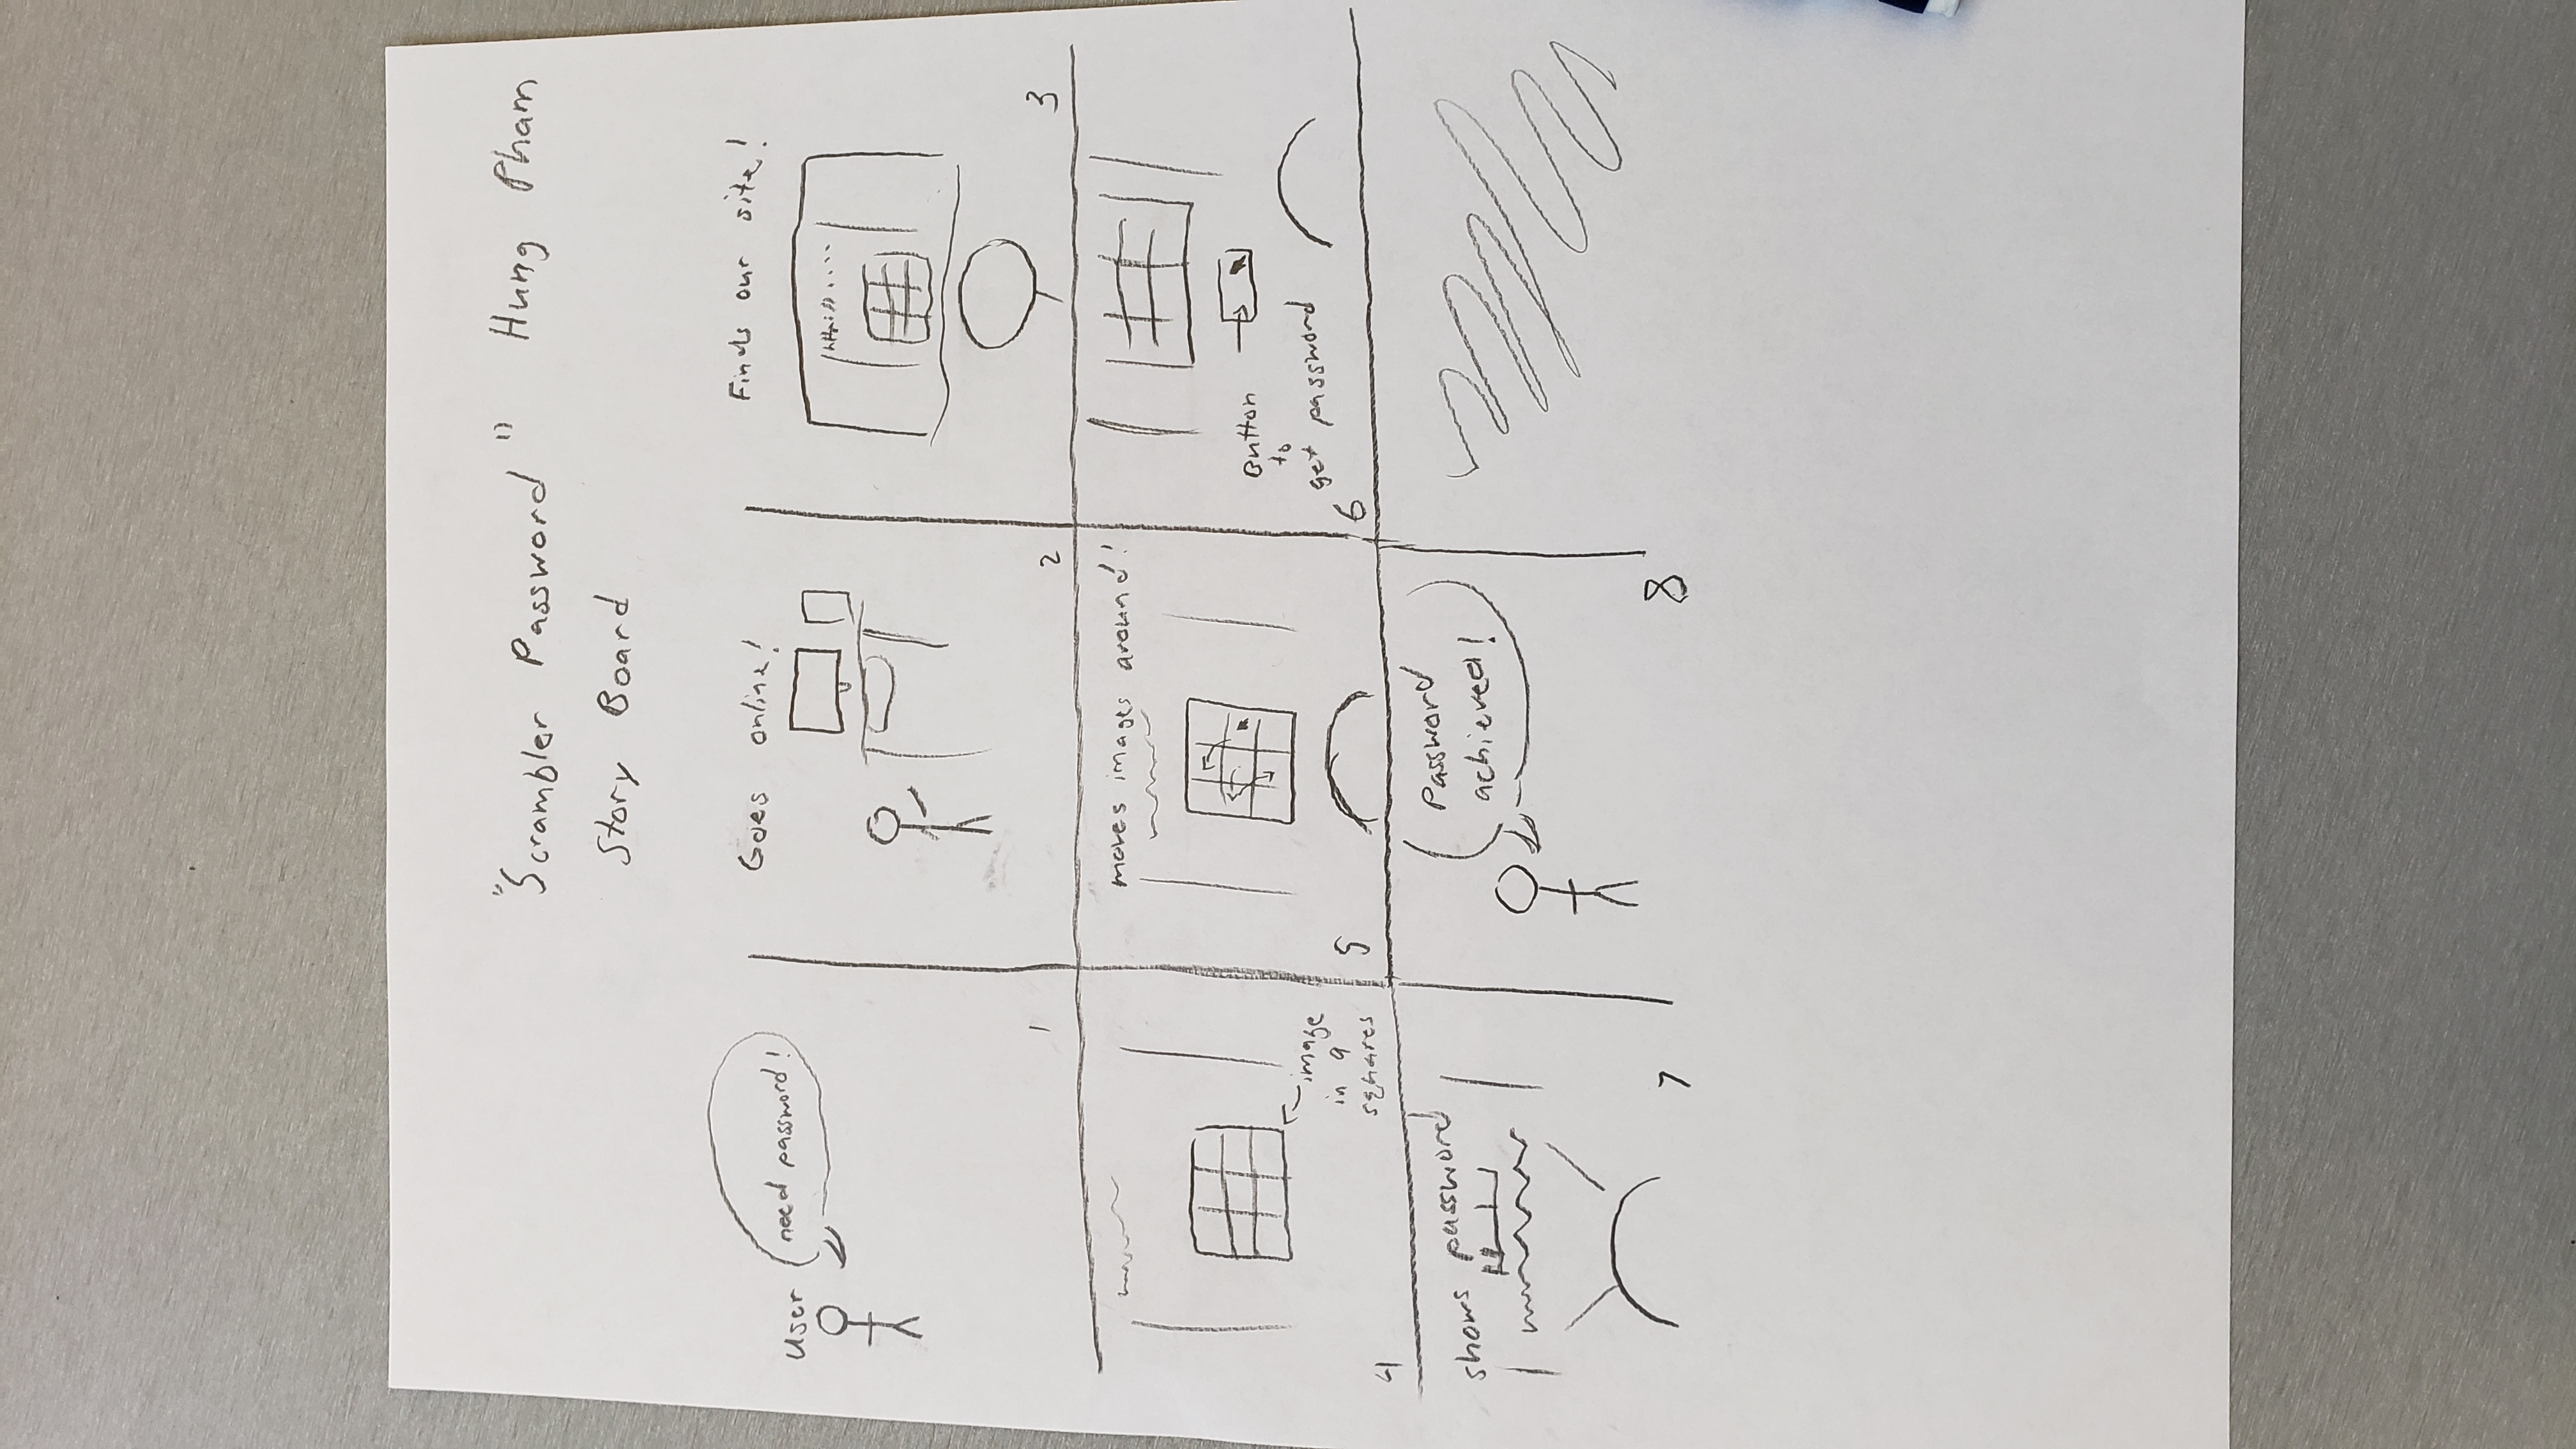 "Scrambler Password" Hung Pham
Story Board
User
need password!
1
Goes online!
2
Finds our site!
3
image
in 9
squares
4
moves images around!
5
Button
to
get password
6
shows password
7
Password
achieved!
8